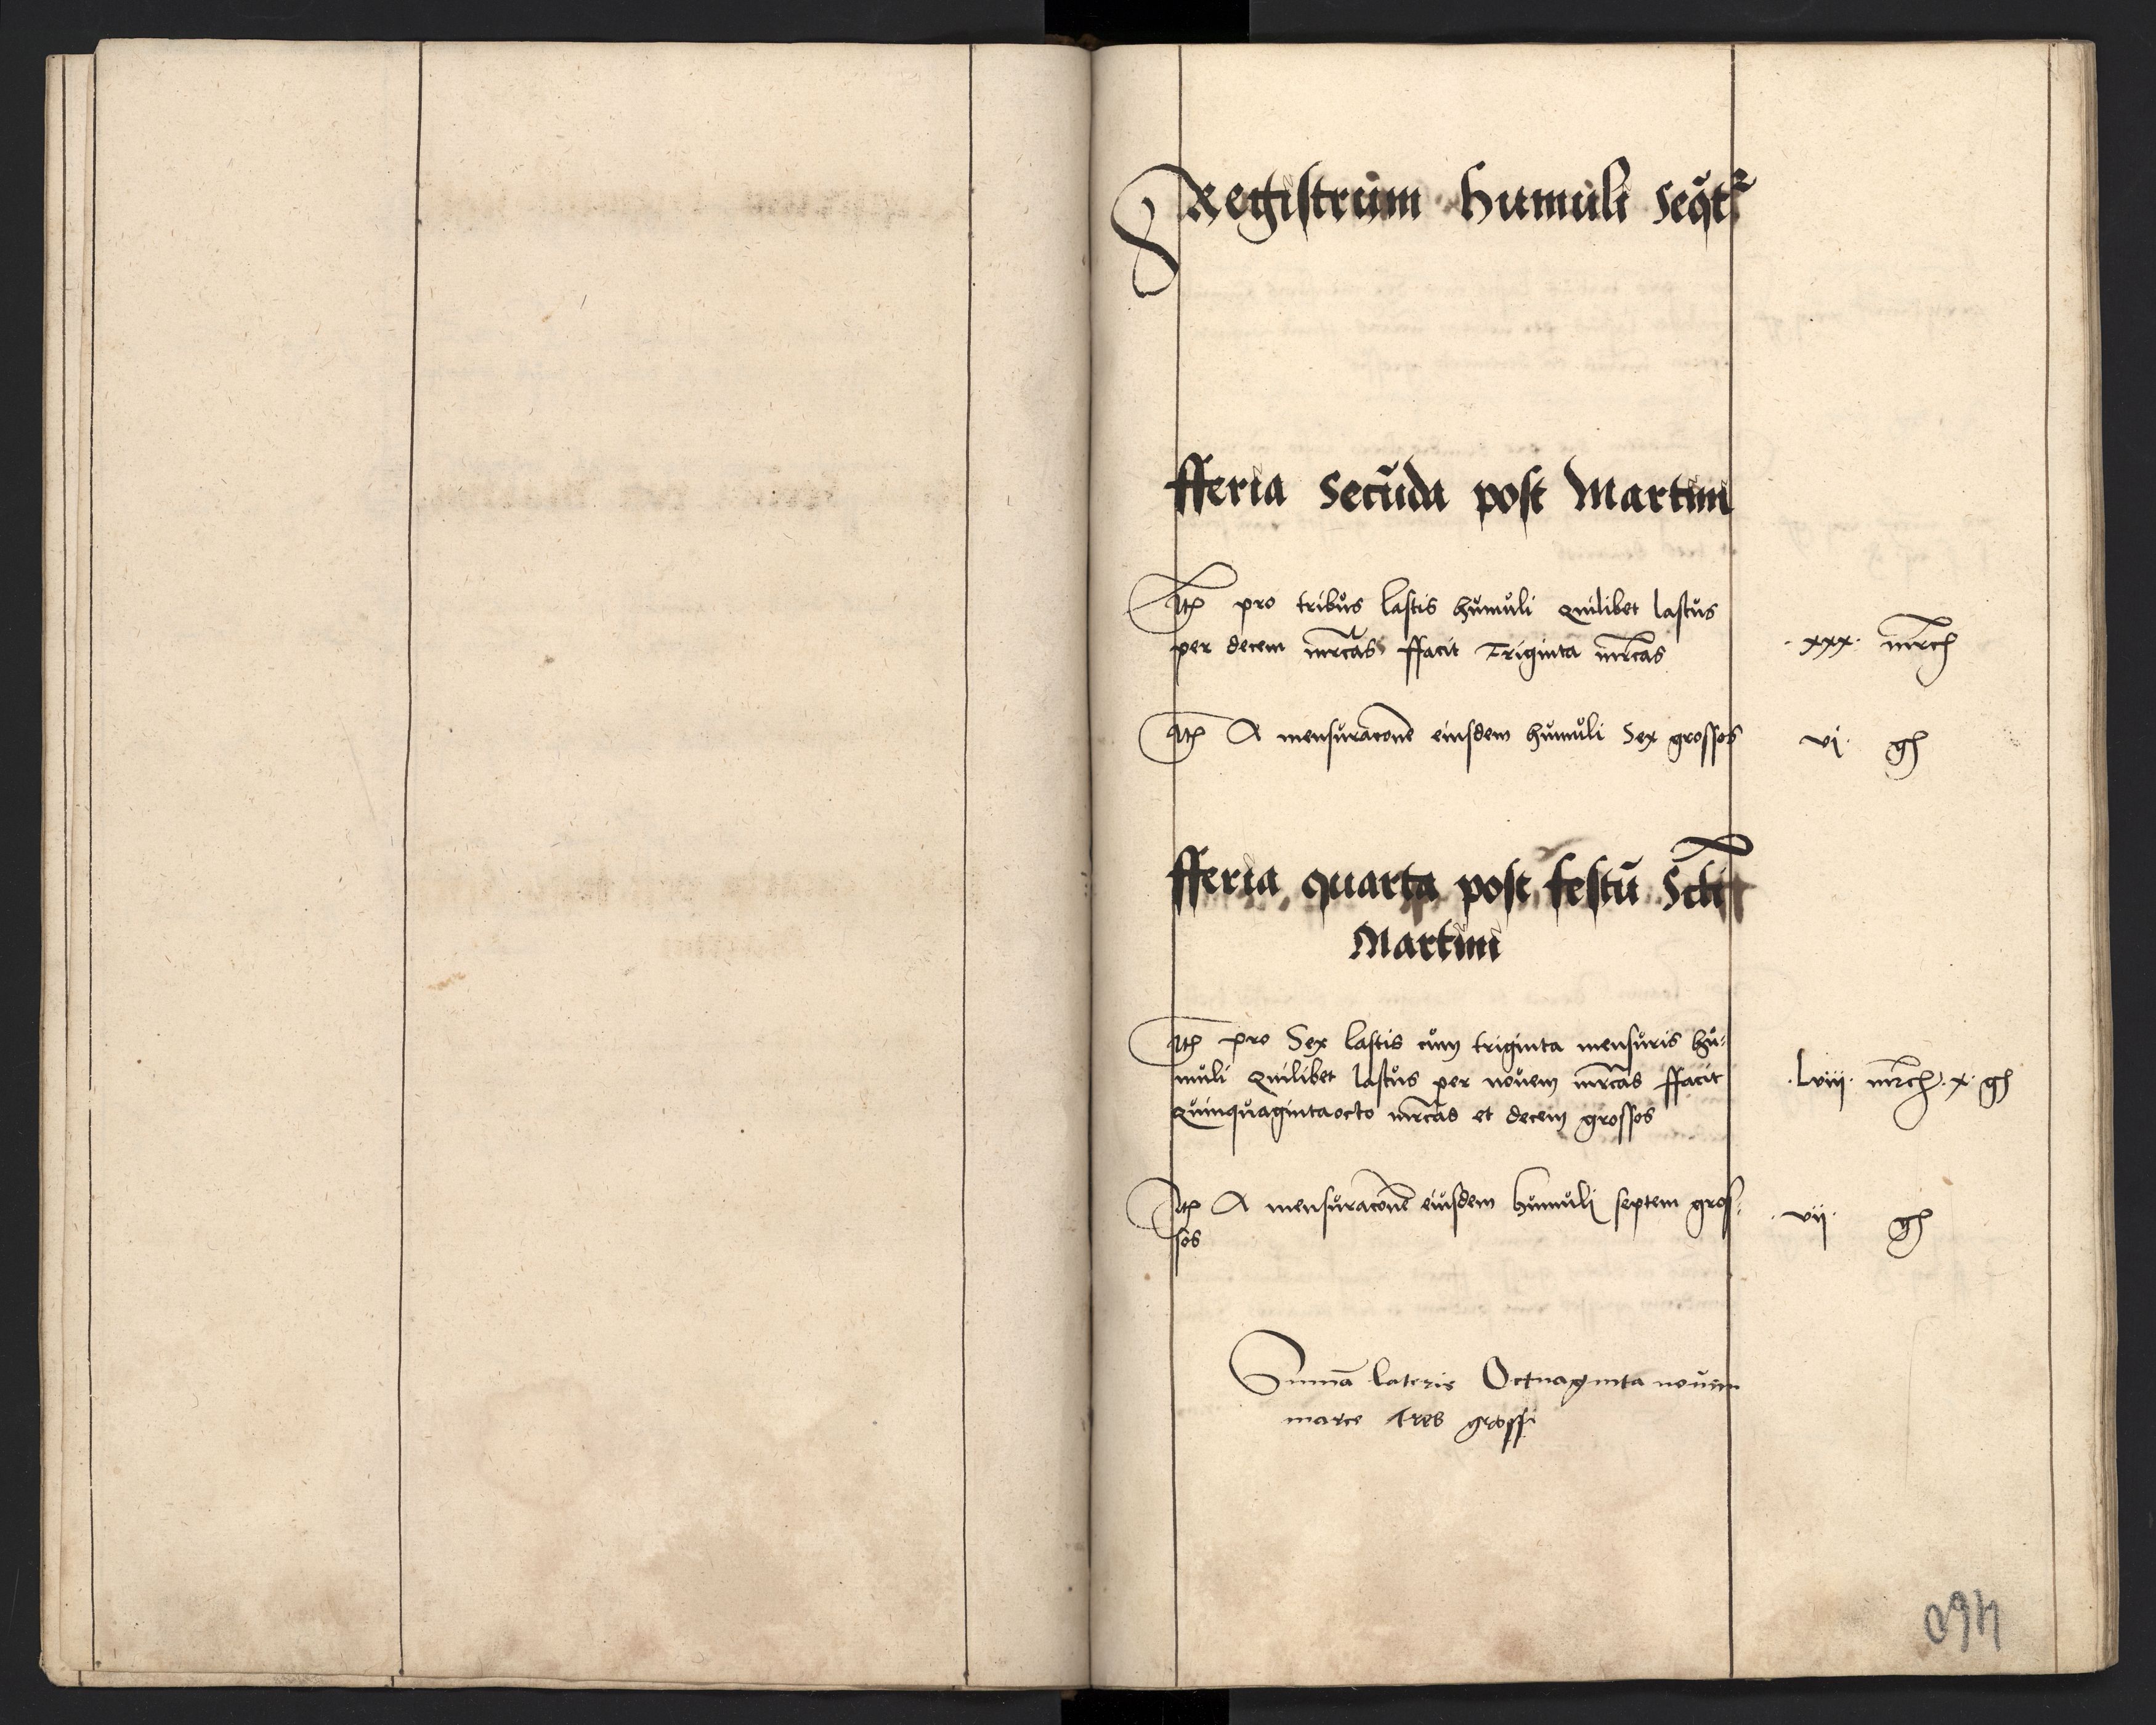 Registrum humuli Seqt᷑
fferia Secũda post Martini
Itē pro tribus lastis humuli Quilibet lastus
per decem mr̃cas ffacit Triginta mr̃cas
·xxx· mr̃c
Itē A mensuracone eiusdem humuli Sex grossos
vi· gͬ
fferia quarta post festũ Scti
Martini
Itē pro Sex lastis cum triginta mensuris hu-
muli Quilibet lastus per nouem mr̃cas ffacit
Quinquagintaocto mr̃cas et decem grossos
·Lviij· mr̃c ·x· gͬ
Itē A mensuracone eiusdem humuli septem gros-
sos
·vij· gͬ
Summa lateris Octuaginta nouem
marce Tres grossi
460